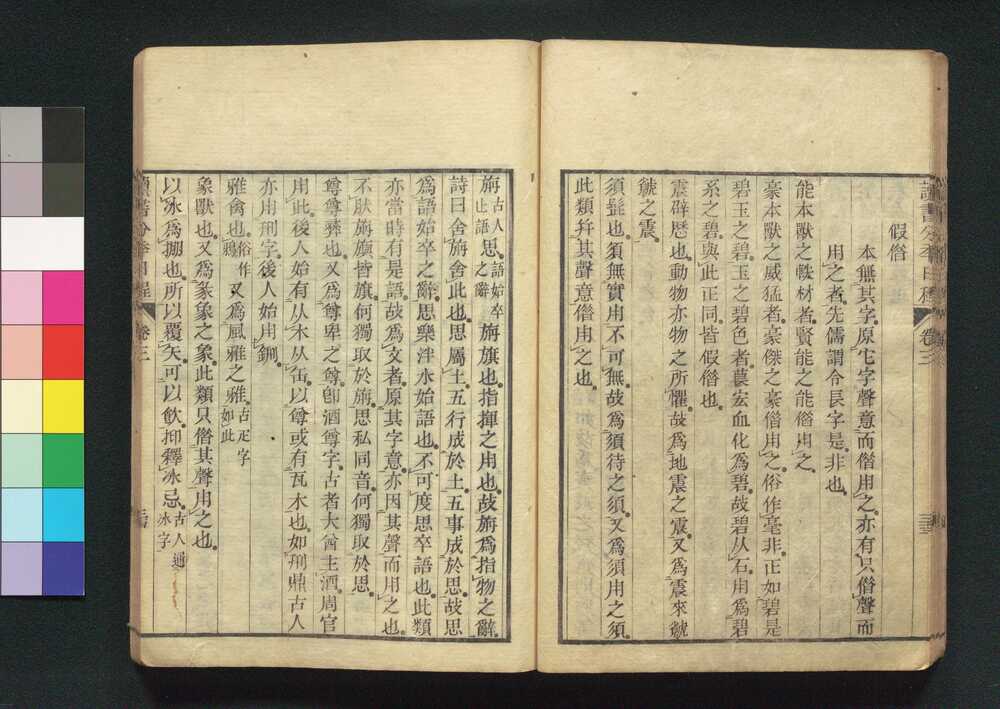 假僭
本無其字原乇字聲意而僭用之亦有只僭聲而
用之者先儒謂令長字是非也
能本獸之
材者賢能之能僭用之
豪本獸之威猛者豪傑之豪僭用之俗作毫非正如碧是
碧玉之碧玉之碧色者萇宏血化爲碧故碧从石用爲碧
系之碧與此正同皆假僭也
震辟厯也動物亦物之所懼故爲地震之震又爲震來虩
虩之震
須髭也須無實用不可無故爲須待之須又爲須用之須
此類幷其聲意僭用之也
旃古人語止語思語始卒之辭旃旗也指揮之用也故旃爲指物之辭
詩曰舍旃舍此也思屬土五行成於土五事成於思故思
爲語始卒之辭思樂泮水始語也不可度思卒語也此類
亦當時有是語故爲文者原其字意亦因其聲而用之也
不肰旃旟皆旗何獨取於旃思私同音何獨取於思
尊尊彞也又爲尊卑之尊卽酒尊字古者大酋主酒周官
用此後人始有从木从缶以尊或有瓦木也如刑鼎古人
亦用刑字後人始用鉶
雅禽也俗作鴉又爲風雅之雅古疋字如此
象獸也又爲豙象之象此類只僭其聲用之也
以冰爲掤也所以覆矢可以飲抑釋冰忌古人通冰字
卷三
卷三